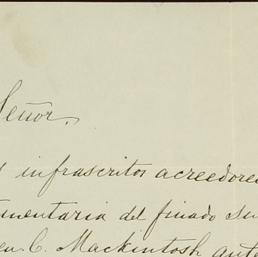 Señor.
s infrascritos acreedore
mentaria del finado Señ
en C. Mackintosh ante